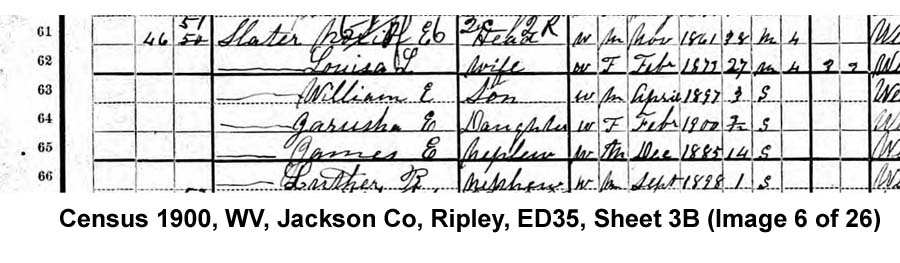 61 46 51 50 Slater E Head W M Nov 1861 38 M 4
62 Louisa L Wife W F Febr 1873 27 M 4 2 2
63 William E Son W M April 1897 3 S
64 Garusha E Daughter W F Febr 1900 S
65 James E Nephew W M Dec 1885 14 S
66 Luther B. Nephew W M Sept 1898 1 S
Census 1900, WV, Jackson Co, Ripley, ED35, Sheet 3B (Image 6 of 26)